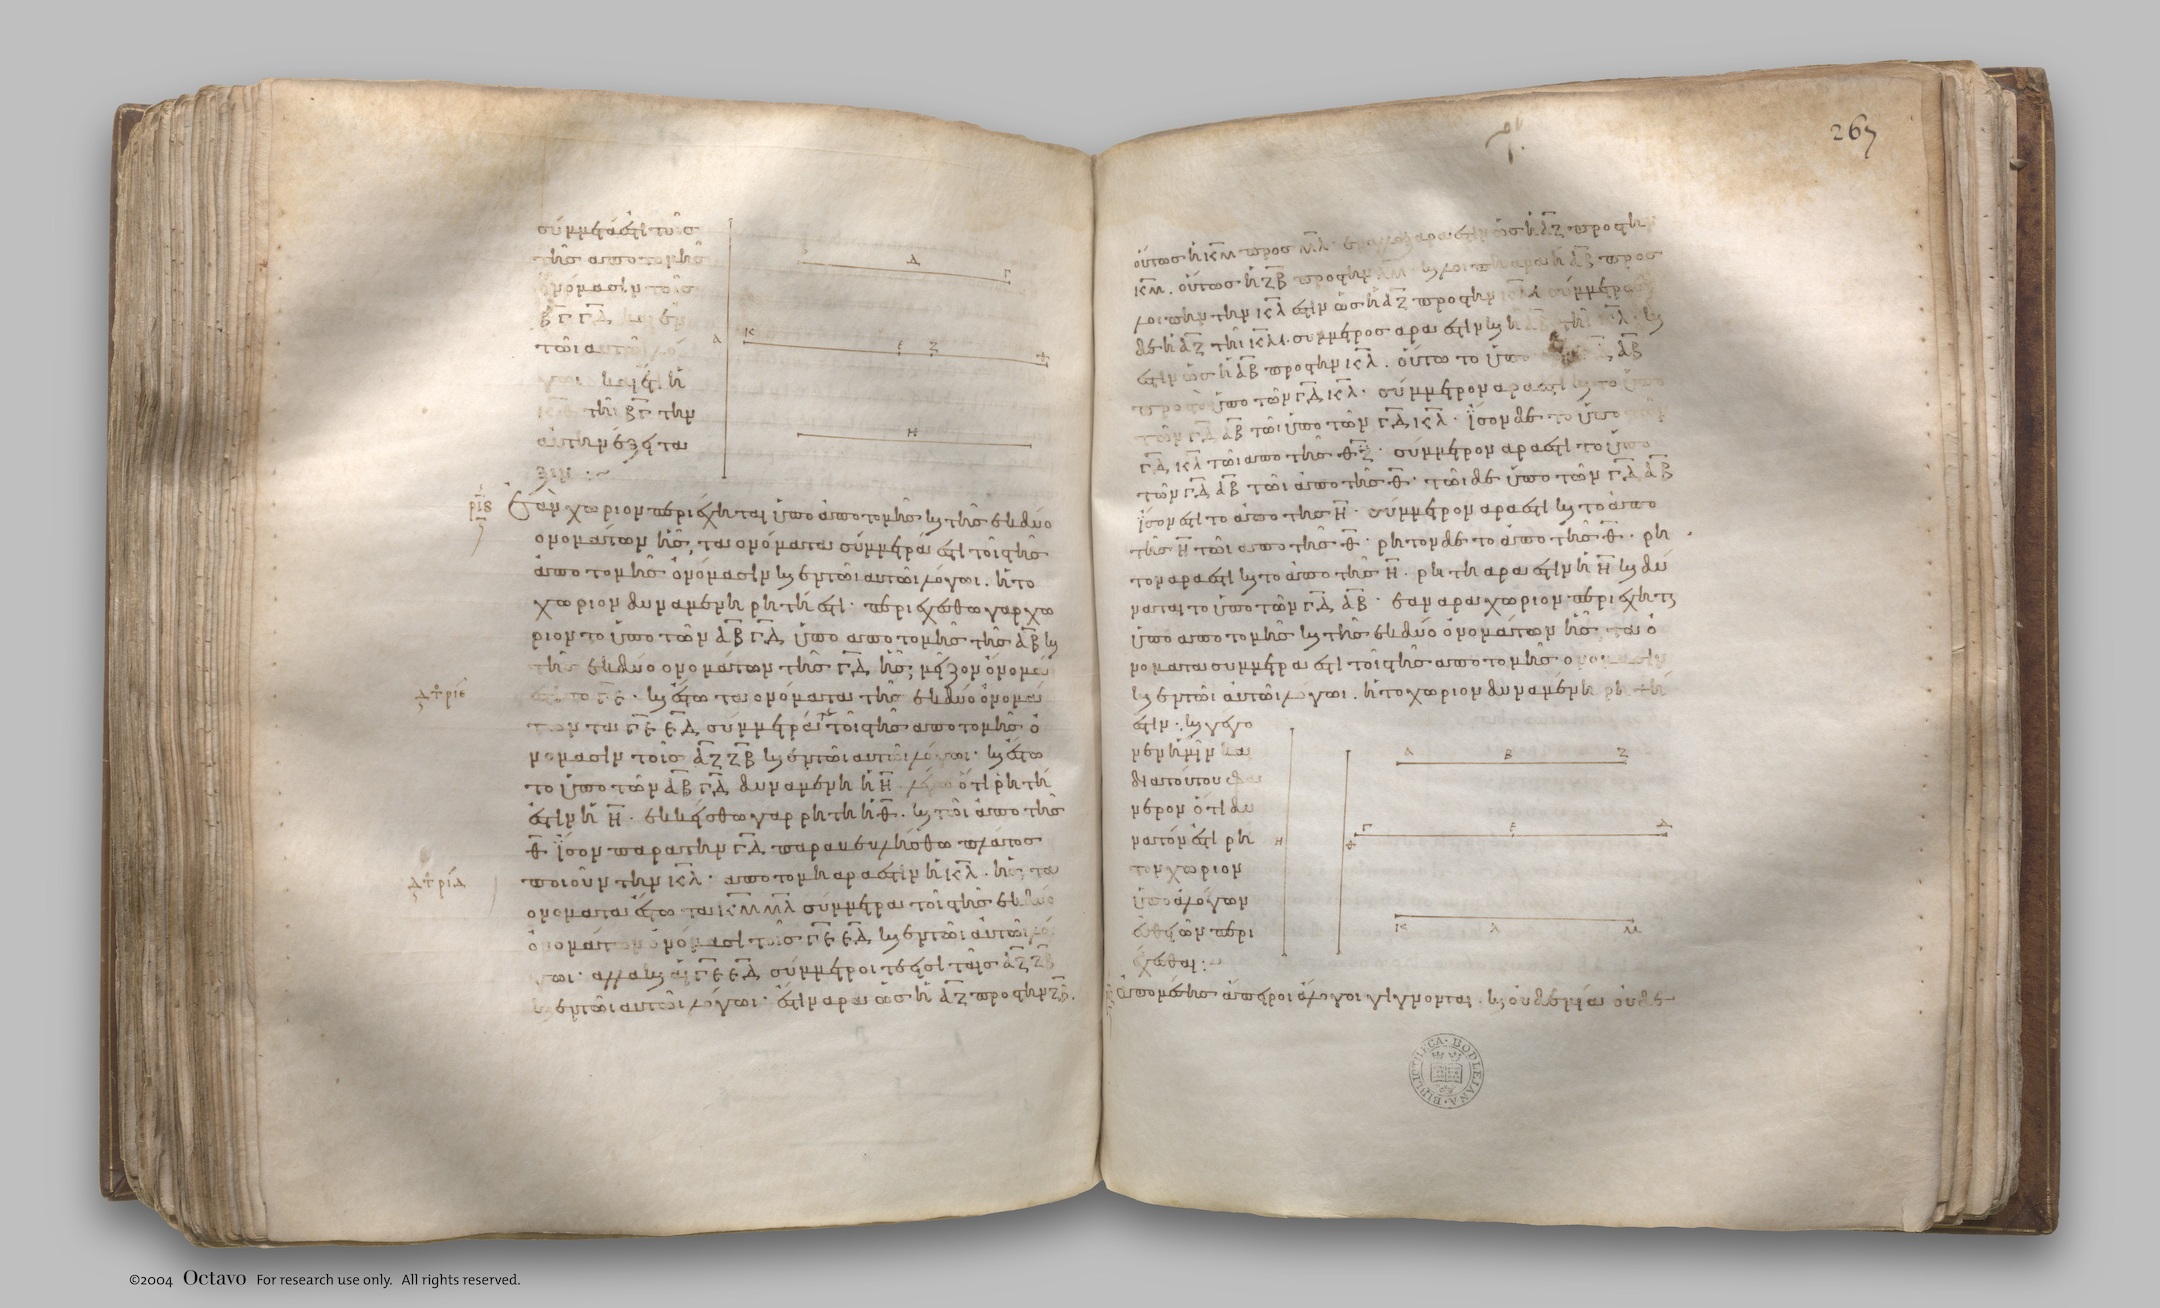 σύμμετρά ἐστι τοῖς
τῆς ἀποτομῆς
ὀνόμασιν τοῖς
ΒΓ ΓΔ καὶ ἐν
τῶι αὐτῶι λό
γωι καὶ ἔτι ἡ
τῆι ΒΓ τὴν
αὐτὴν ἕξει τά
ξιν :~
ριδ
Ἐὰν χωρίον περιέχηται ὑπὸ ἀποτομῆς καὶ τῆς ἐκ δύο
ὀνομάτων ἧς τὰ ὀνόματα σύμμετρά ἐστι τοῖς τῆς
ἀποτομῆς ὀνόμασιν καὶ ἐν τῶι αὐτῶι λόγωι. ἡ τὸ
χωρίον δυναμένη ῥητή ἐστι· περιεχέσθω γὰρ χω
ρίον τὸ ὑπὸ τῶν ΑΒ ΓΔ ὑπὸ ἀποτομῆς τῆς ΑΒ καὶ
τῆς ἐκ δύο ὀνομάτων τῆς ΓΔ ἧς μεῖζον ὄνομά
ἐστι τὸ ΓΕ· καὶ ἔστω τὰ ὀνόματα τῆς ἐκ δύο ὀνομά
των τὰ ΓΕ ΕΔ σύμμετρά τε τοῖς τῆς ἀποτομῆς ὀ
νόμασιν τοῖς ΑΖ ΖΒ καὶ ἐν τῶι αὐτῶι λόγωι· καὶ ἔστω
τὸ ὑπὸ τῶν ΑΒ ΓΔ δυναμένη ἡ Η· λέγω ὅτι ῥητή
ἐστιν ἡ Η· ἐκκείσθω γὰρ ῥητὴ ἡ Θ· καὶ τῶι ἀπὸ τῆς
Θ ἴσον παρὰ τὴν ΓΔ παραβεβλήσθω πλάτος
ποιοῦν τὴν ΚΛ· ἀποτομὴ ἄρα ἐστὶν ἡ ΚΛ· ἧς τὰ
ὀνόματα ἔστω τὰ ΚΜ ΜΛ σύμμετρα τοῖς τῆς ἐκ δύο
ὀνομάτων ὀνόμασι τοῖς ΓΕ ΕΔ καὶ ἐν τῶι αὐτῶι λό
γωι· ἀλλὰ καὶ αἱ ΓΕ ΕΔ σύμμετροί τέ εἰσι ταῖς ΑΖ ΖΒ
καὶ ἐν τῶι αὐτῶι λόγωι· ἔστιν ἄρα ὡς ἡ ΑΖ πρὸς τὴν ΖΒ.
Δ
Γ
Α
Κ
Ε
Ζ
Θ
Η
267
οὕτως ἡ ΚΜ πρὸς ΜΛ· ἐναλλὰξ ἄρα ἐστὶν ὡς ἡ ΑΖ πρὸς τὴν
ΚΜ. οὕτως ἡ ΖΒ πρὸς τὴν ΛΜ· καὶ λοιπὴ ἄρα ἡ ΑΒ πρὸς
λοιπὴν τὴν ΚΛ ἐστὶν ὡς ἡ ΑΖ πρὸς τὴν ΚΜ σύμμετρος
δὲ ἡ ΑΖ τῆι ΚΜ· σύμμετρος ἄρα ἐστὶν καὶ ἡ ΑΒ τῆι ΚΛ· καὶ
ἐστιν ὡς ἡ ΑΒ πρὸς τὴν ΚΛ. οὕτω τὸ ὑπὸ ΑΒ
πρὸς τὸ ὑπὸ τῶν ΓΔ ΚΛ· σύμμετρον ἄρα ἐστὶ καὶ τὸ ὑπὸ
τῶν ΓΔ ΑΒ τῶι ὑπὸ τῶν ΓΔ ΚΛ· ἴσον δὲ τὸ ὑπὸ τῶν
ΓΔ ΚΛ τῶι ἀπὸ τῆς Θ· σύμμετρον ἄρα ἐστὶ τὸ ὑπὸ
τῶν ΓΔ ΑΒ τῶι ἀπὸ τῆς Θ· τῶι δὲ ὑπὸ τῶν ΓΔ ΑΒ
ἴσον ἐστὶ τὸ ἀπὸ τῆς Η· σύμμετρον ἄρα ἐστὶ καὶ τὸ ἀπὸ
τῆς Η τῶι ἀπὸ τῆς Θ· ῥητὸν δὲ τὸ ἀπὸ τῆς Θ· ῥη
τὸν ἄρα ἐστὶ καὶ τὸ ἀπὸ τῆς Η· ῥητὴ ἄρα ἐστὶν ἡ Η καὶ δύ
ναται τὸ ὑπὸ τῶν ΓΔ ΑΒ· ἐὰν ἄρα χωρίον περιέχηται
ὑπὸ ἀποτομῆς καὶ τῆς ἐκ δύο ὀνομάτων ἧς τὰ ὀ
νόματα σύμμετρά ἐστι τοῖς τῆς ἀποτομῆς ὀνόμασιν
καὶ ἐν τῶι αὐτῶι λόγωι. ἡ τὸ χωρίον δυναμένη ῥητή
ἐστιν· καὶ γέγο
νεν ἡμῖν καὶ
διὰ τούτου φα
νερὸν ὅτι δυ
νατόν ἐστι ῥη
τὸν χωρίον
ὑπὸ ἀλόγων
εὐθειῶν περι
έχεσθαι :~
Η
Θ
Α
Β
Ζ
Γ
Ε
Δ
Κ
Λ
Μ
Ἀπὸ μέσης ἄπειροι ἄλογοι γίγνονται. καὶ οὐδεμία οὐδε
BIBLIOTHECA·BODLEIANA·
©2004 Octavo For research use only. All rights reserved.